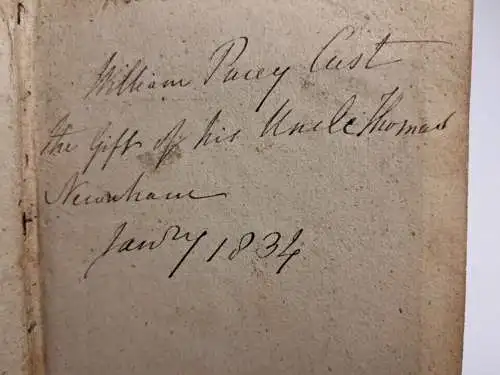 William Pacey Cust
the Gift of his Uncle Thomas
Newnham
Jan'ry 1834